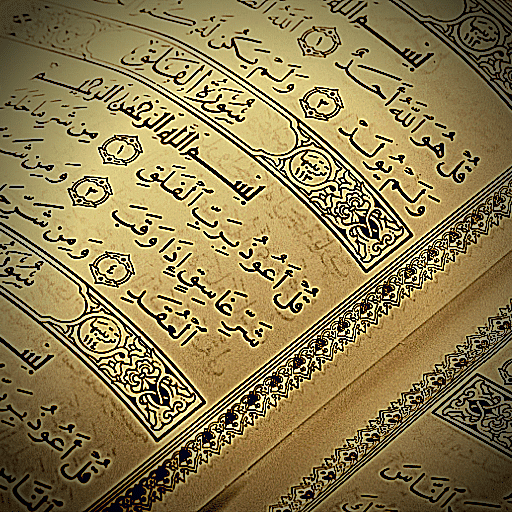 بِسْمِ ٱللَّهِ
قُلْ هُوَ ٱللَّهُ أَحَدٌ ١ ٱللَّهُ
وَلَمْ يُولَدْ ٣ وَلَمْ يَكُن لَّهُ
سُورَةُ ٱلْفَلَقِ
بِسْمِ ٱللَّهِ ٱلرَّحْمَٰنِ ٱلرَّحِيمِ
قُلْ أَعُوذُ بِرَبِّ ٱلْفَلَقِ ١ مِن شَرِّ مَا خَلَقَ
شَرِّ غَاسِقٍ إِذَا وَقَبَ ٣ وَمِن شَرِّ
ٱلْعُقَدِ ٤ وَمِن شَرِّ
سُورَةُ
بِسْمِ
قُلْ أَعُوذُ بِرَبِّ
ٱلنَّاسِ
ٱلنَّاسِ